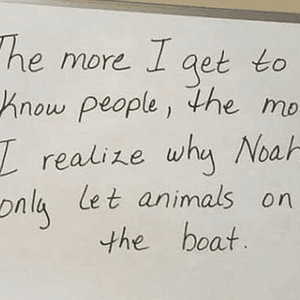 The more I get to
Know people, the mo
I realize why Noah
only let animals on
the boat.